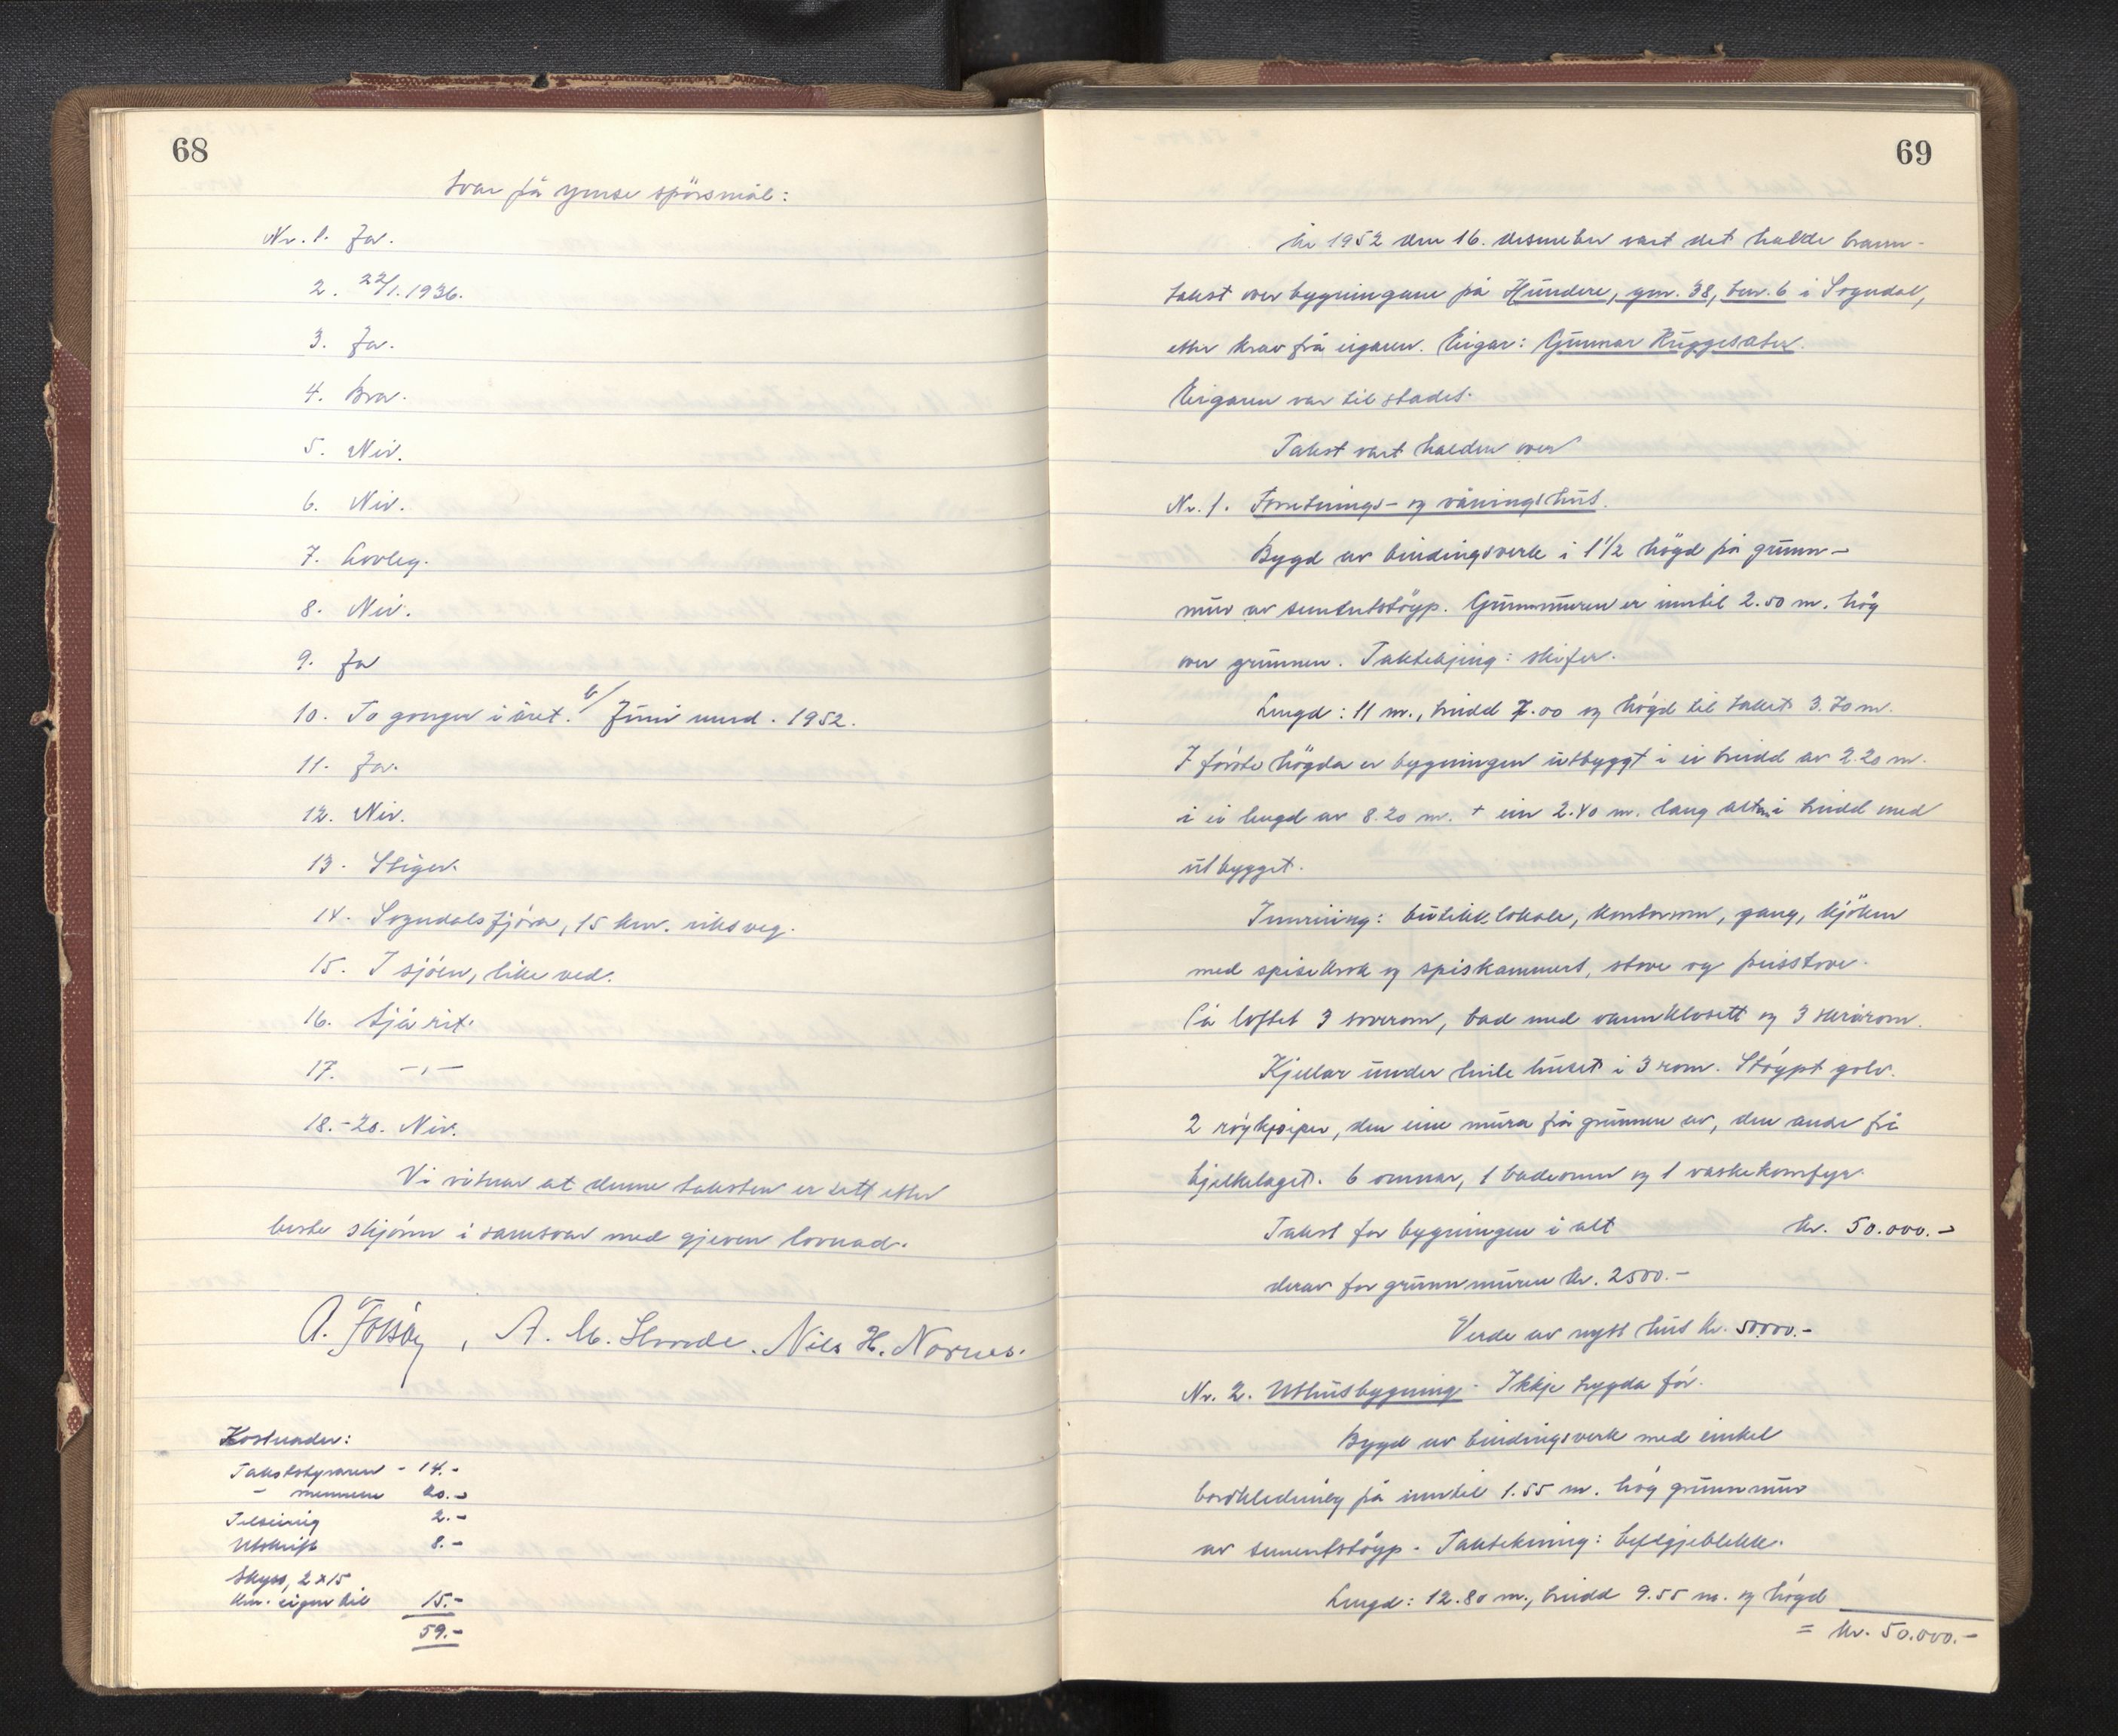 68
Svar på ymse spörsmål:
Nr. 1. Ja.
2. 22/1. 1936.
3. Ja.
4. Bra.
5. Nei.
6. Nei.
7. Lovleg.
8. Nei.
9. Ja
10. To gonger i året. Juni mnd. 1952.
11. Ja.
12. Nei.
13. Stiger.
14. Sogndalsfjöra, 15 km. riksveg.
15. I sjöen, like ved.
16. Sjå rit.
17. -"-
18.-20. Nei.
Vi vitnar at denne taksten er sett etter
beste skjönn i samsvar med gjeven lovnad.
A. , A. M. . Nils H. Nornes.
Kostnader:
Takststyraren - 14.-
- mennene 20.-
Tilseiing 2.-
Utskrift 8.-
Skyss, 2 x 15
km. eigen bil 15.-
59.-
69
År 1952 den 16. desember vart det halde brann-
takst over bygningane på Hundere, gnr. 38, bnr. 6 i Sogndal,
etter krav frå eigaren. Eigar: Gunnar Ruggesæter.
Eigaren var til stades.
Takst vart halden over
Nr. 1. Forretnings- og våningshus.
Bygd av bindingsverk i 1 1/2 högd på grunn-
mur av sementstöyp. Grunnmuren er inntil 2.50 m. hög
over grunnen. Taktekjing: skifer.
Lengd: 11 m., breidd 7.00 og högd til taket 3.70 m.
I förste högda er bygningen utbyggt i ei breidd av 2.20 m.
i ei lengd av 8.20 m. + ein 2.40 m. lang altan i breidd med
utbygget.
Innreiing: butikklokale, kontorrom, gang, kjöken
med spisekrok og spiskammers, stove og peisstove.
På loftet 3 soverom, bad med vannklosett og 3 skrårom.
Kjellar under heile huset i 3 rom. Stöypt golv.
2 röykpiper, den eine mura frå grunnen av, den andre frå
bjelkelaget. 6 omnar, 1 badeomn og 1 vaskekomfyr.
Takst for bygningen i alt kr. 50.000.-
derav for grunnmuren kr. 2500.-
Verde av nytt hus kr. 50000.-
Nr. 2. Uthusbygning. Ikkje trygda för.
Bygd av bindingsverk med einkel
bordkledning på inntil 1.55 m. hög grunnmur
av sementstöyp. Taktekning: bølgjeblekk.
Lengd: 12.80 m., breidd 9.55 m. og högd
= kr. 50.000.-